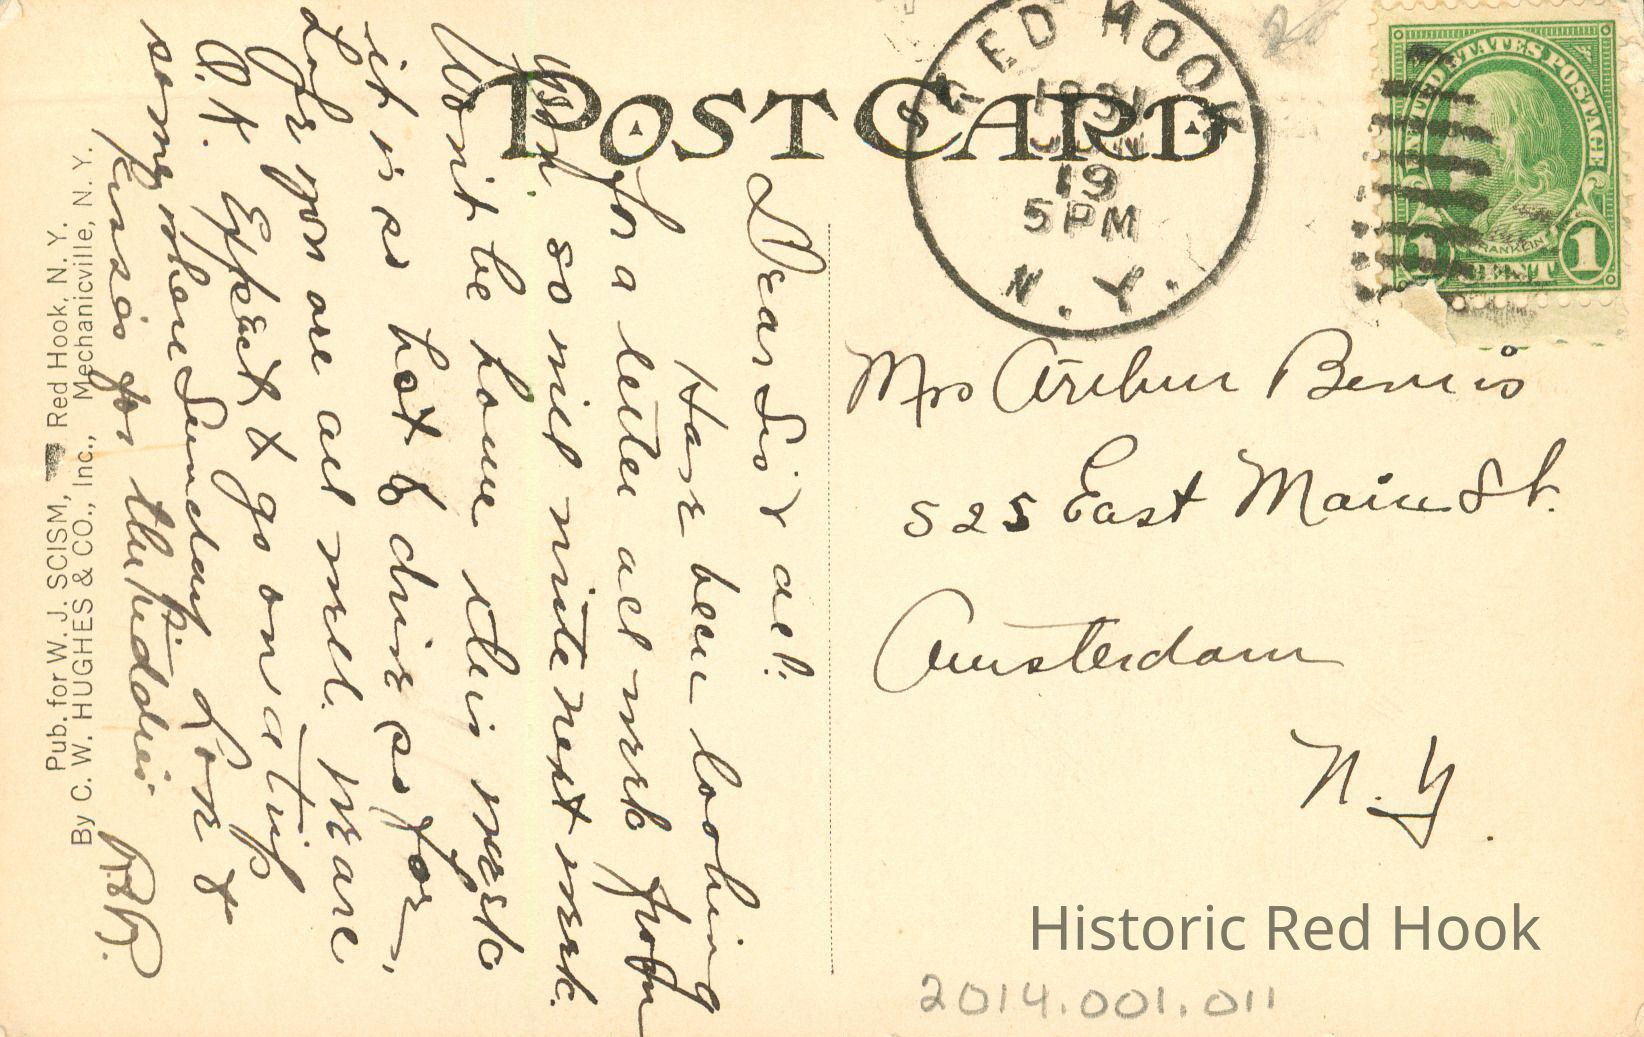 POST CARD
RED HOOK
1931
JUN
19
5 PM
N. Y.
UNITED STATES POSTAGE
FRANKLIN
1 CENT 1
Dear Sis & all:
Have been looking
for a letter all week from
you, so will write next week.
Won't be home this week
it is so hot to drive so far,
Hope you are all well. We are
O.K. Expect to go on a trip
some where Sunday. Love &
kisses for the kiddies.
Mrs Arthur Bemis
525 East Main St.
Amsterdam
N. Y.
Pub. for W. J. SCISM, Red Hook, N. Y.
By C. W. HUGHES & CO., Inc., Mechanicville, N. Y.
Historic Red Hook
2014.001.011